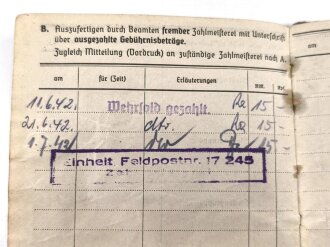 B. Auszufertigen durch Beamten fremder Zahlmeisterei mit Unterschrift
über ausgezahlte Gebührnisbeträge.
Zugleich Mitteilung (Vordruck) an zuständige Zahlmeisterei nach A.
am für (Zeit) Erläuterungen RM.
11.6.42. Wehrsold gezahlt. 15 -
21.6.42. dto. 15 -
1.7.42. 15 -
Einheit Feldpostnr. 17 245